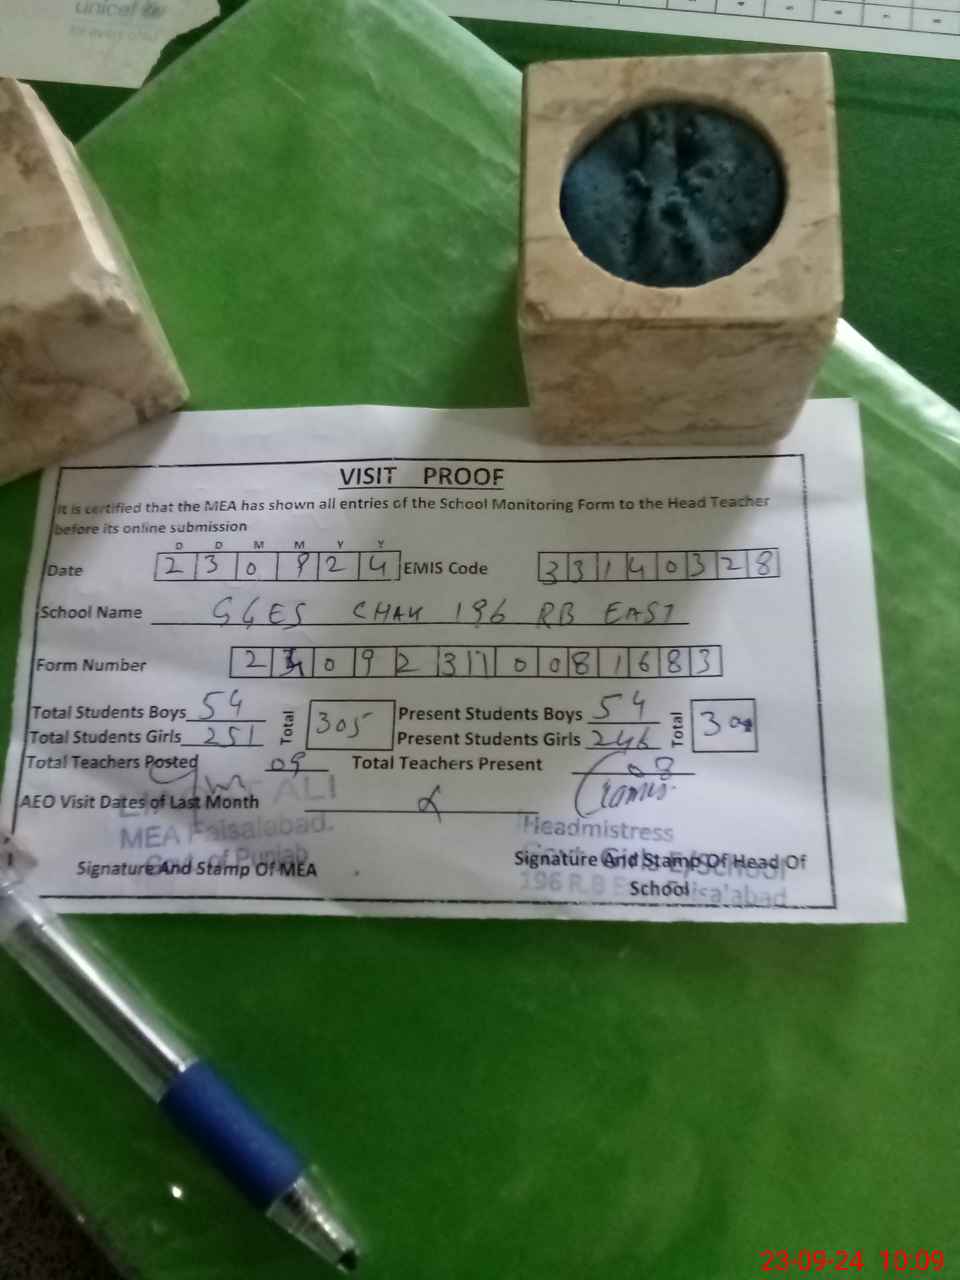 unicef
for every child
VISIT PROOF
It is certified that the MEA has shown all entries of the School Monitoring Form to the Head Teacher
before its online submission
D D M M Y Y
Date 2 3 0 9 2 4 EMIS Code 3 3 1 4 0 3 2 8
School Name GGES CHAK 196 RB EAST
Form Number
Total Students Boys 54 Total 305 Present Students Boys 54 Total
Total Students Girls 251 Present Students Girls 246
Total Teachers Posted 09 Total Teachers Present 08
ALI
AEO Visit Dates of Last Month
MEA Faisalabad.
Govt. of Punjab
Signature And Stamp Of MEA
Headmistress
Govt. Girls E/School
Signature And Stamp Of Head Of
School
196 R.B East Faisalabad
23-09-24 10:09